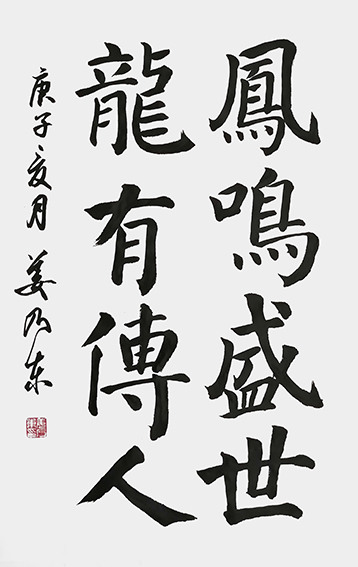 鳳鳴盛世
龍有傳人
庚子亥月 姜乃東